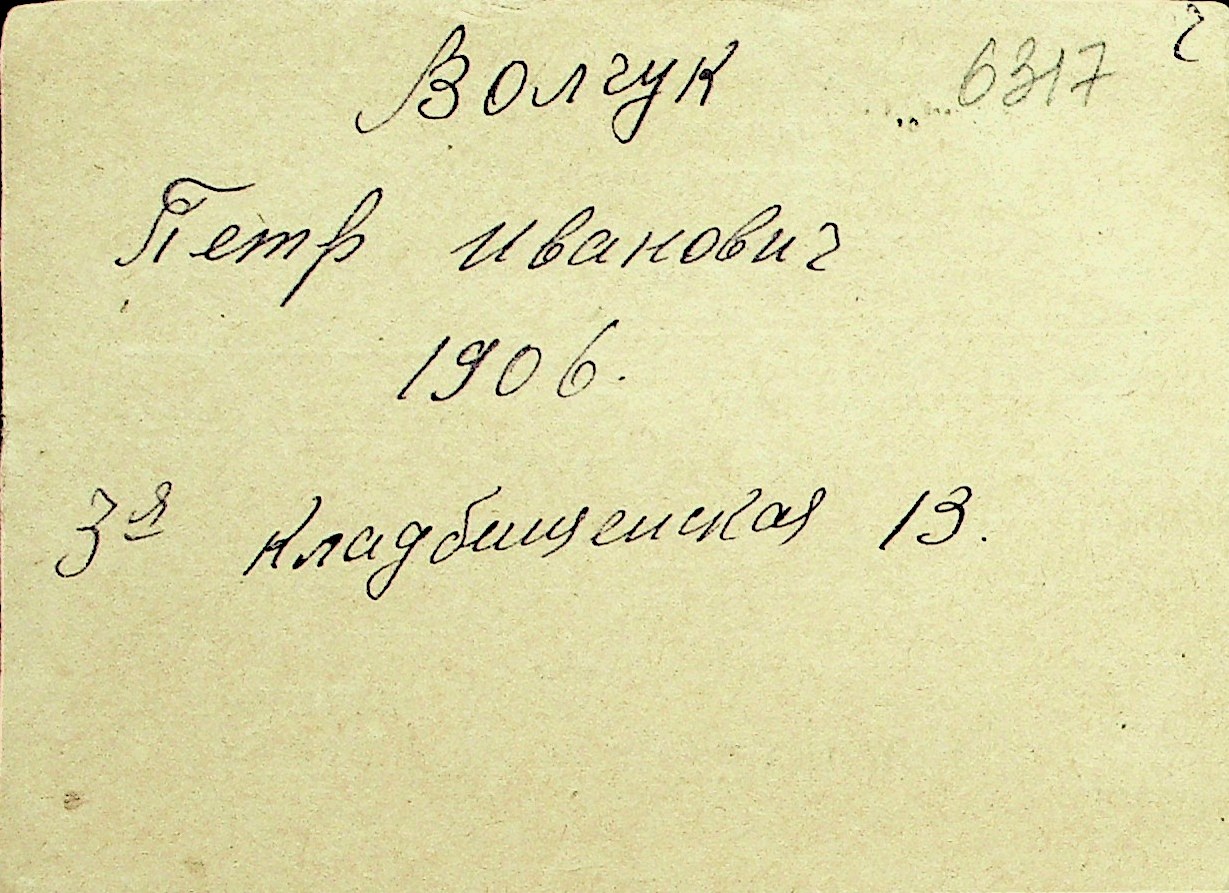 Волчук 6317
Петр Иванович
1906.
3я Кладбищенская 13.